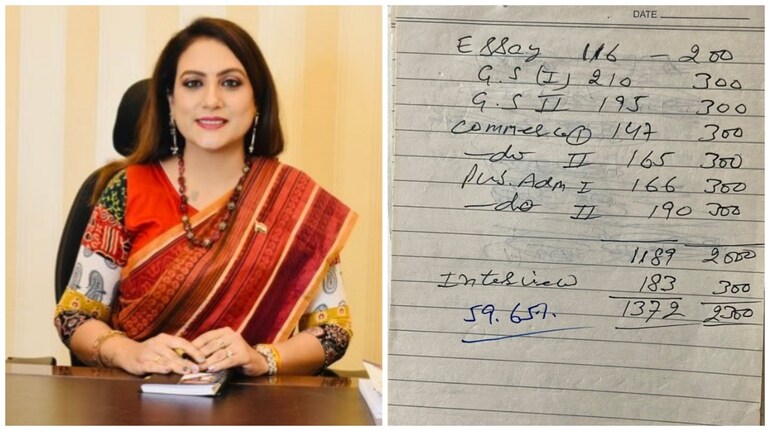 DATE
Essay 116 — 200
G.S (I) 210 300
G.S II 195 300
Commerce (I) 147 300
—do II 165 300
Pub. Adm I 166 300
—do II 190 300
1189 2000
Interview 183 300
1372 2300
59.65%